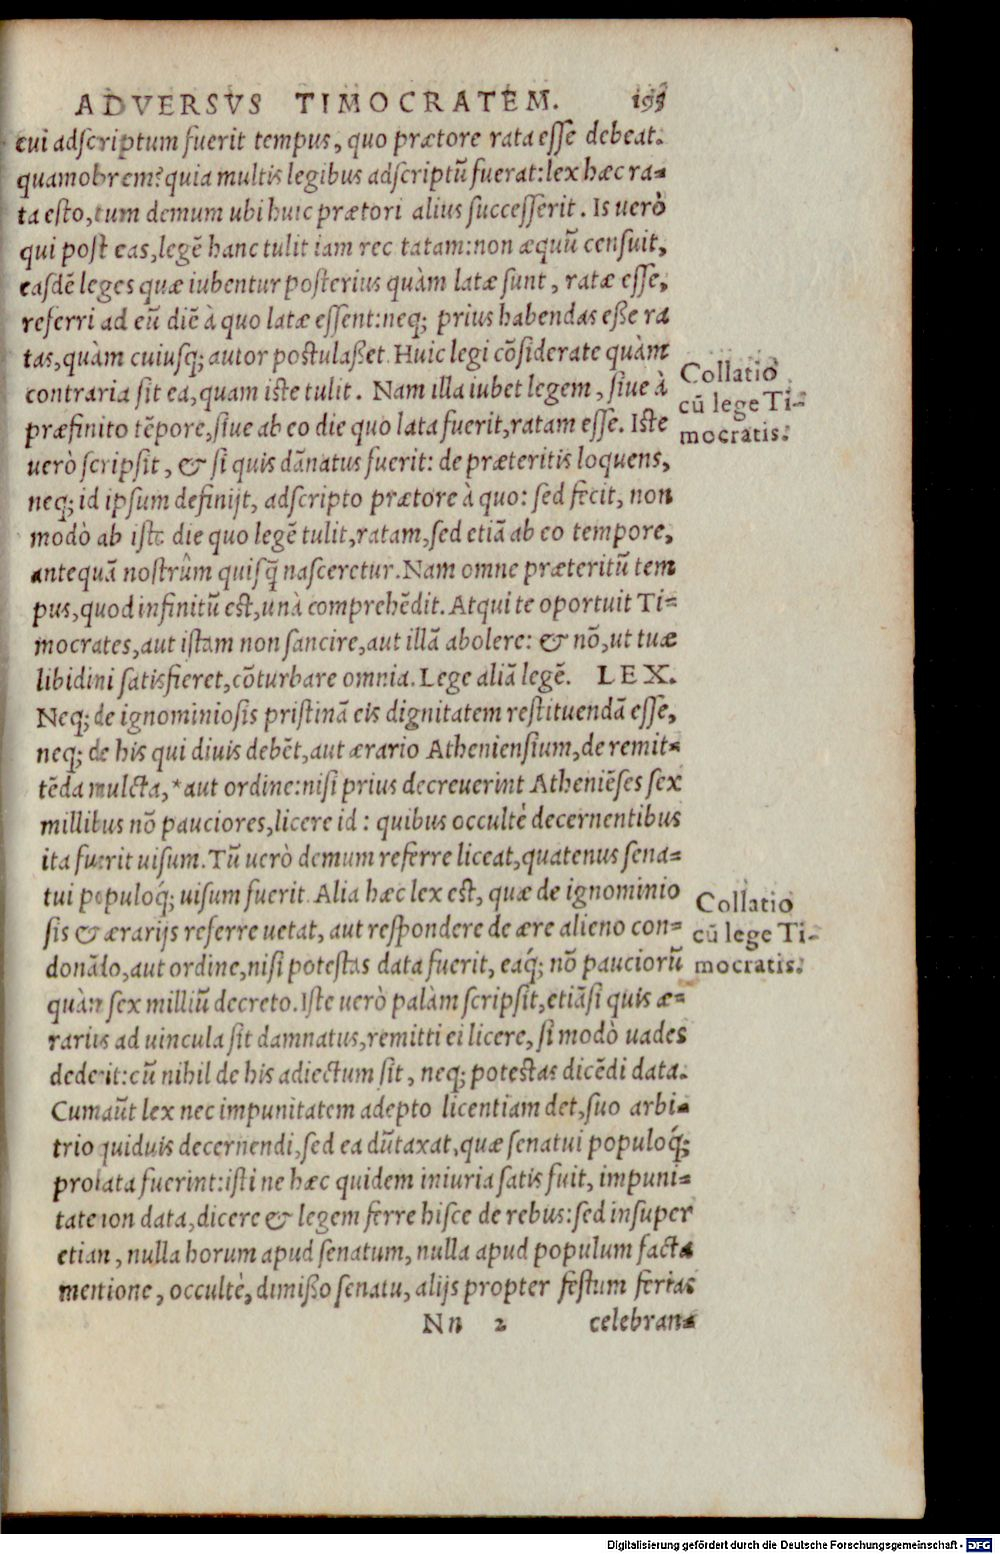 ADVERSVS TIMOCRATEM. 195
cui adscriptum fuerit tempus, quo prætore rata esse debeat.
quamobrem? quia multis legibus adscriptū fuerat: lex hæc ra-
ta esto, tum demum ubi huic prætori alius successerit. Is uerò
qui post eas, legē hanc tulit iam rec tatam: non æquū censuit,
easdē leges quæ iubentur posterius quàm latæ sunt, ratæ esse,
referri ad eū diē à quo latæ essent: neq; prius habendas eße ra
tas, quàm cuiusq; autor postulaßet. Huic legi cōsiderate quàm
contraria sit ea, quam iste tulit. Nam illa iubet legem, siue à
præfinito tēpore, siue ab eo die quo lata fuerit, ratam esse. Iste
uerò scripsit, & si quis dānatus fuerit: de præteritis loquens,
neq; id ipsum definijt, adscripto prætore à quo: sed fecit, non
modò ab isto die quo legē tulit, ratam, sed etiā ab eo tempore,
antequā nostrûm quisq̃ nasceretur. Nam omne præteritū tem
pus, quod infinitū est, unà comprehēdit. Atqui te oportuit Ti-
mocrates, aut istam non sancire, aut illā abolere: & nō, ut tuæ
libidini satisfieret, cōturbare omnia. Lege aliā legē. LEX.
Neq; de ignominiosis pristinā eis dignitatem restituendā esse,
neq; de his qui diuis debēt, aut ærario Atheniensium, de remit-
tēda mulcta, *aut ordine: nisi prius decreuerint Atheniēses sex
millibus nō pauciores, licere id: quibus occultè decernentibus
ita fuerit uisum. Tū uerò demum referre liceat, quatenus sena-
tui populoq́; uisum fuerit. Alia hæc lex est, quæ de ignominio
sis & ærarijs referre uetat, aut respondere de ære alieno con-
donādo, aut ordine, nisi potestas data fuerit, eaq́; nō pauciorū
quàm sex milliū decreto. Iste uerò palàm scripsit, etiāsi quis æ-
rarius ad uincula sit damnatus, remitti ei licere, si modò uades
dederit: cū nihil de his adiectum sit, neq; potestas dicēdi data.
Cum aūt lex nec impunitatem adepto licentiam det, suo arbi-
trio quiduis decernendi, sed ea dūtaxat, quæ senatui populoq́;
probata fuerint: isti ne hæc quidem iniuria satis fuit, impuni-
tate non data, dicere & legem ferre hisce de rebus: sed insuper
etiam, nulla horum apud senatum, nulla apud populum facta
mentione, occultè, dimißo senatu, alijs propter festum ferias
Nn 2 celebran-
Collatio
cū lege Ti-
mocratis.
Collatio
cū lege Ti-
mocratis.
Digitalisierung gefördert durch die Deutsche Forschungsgemeinschaft - DFG